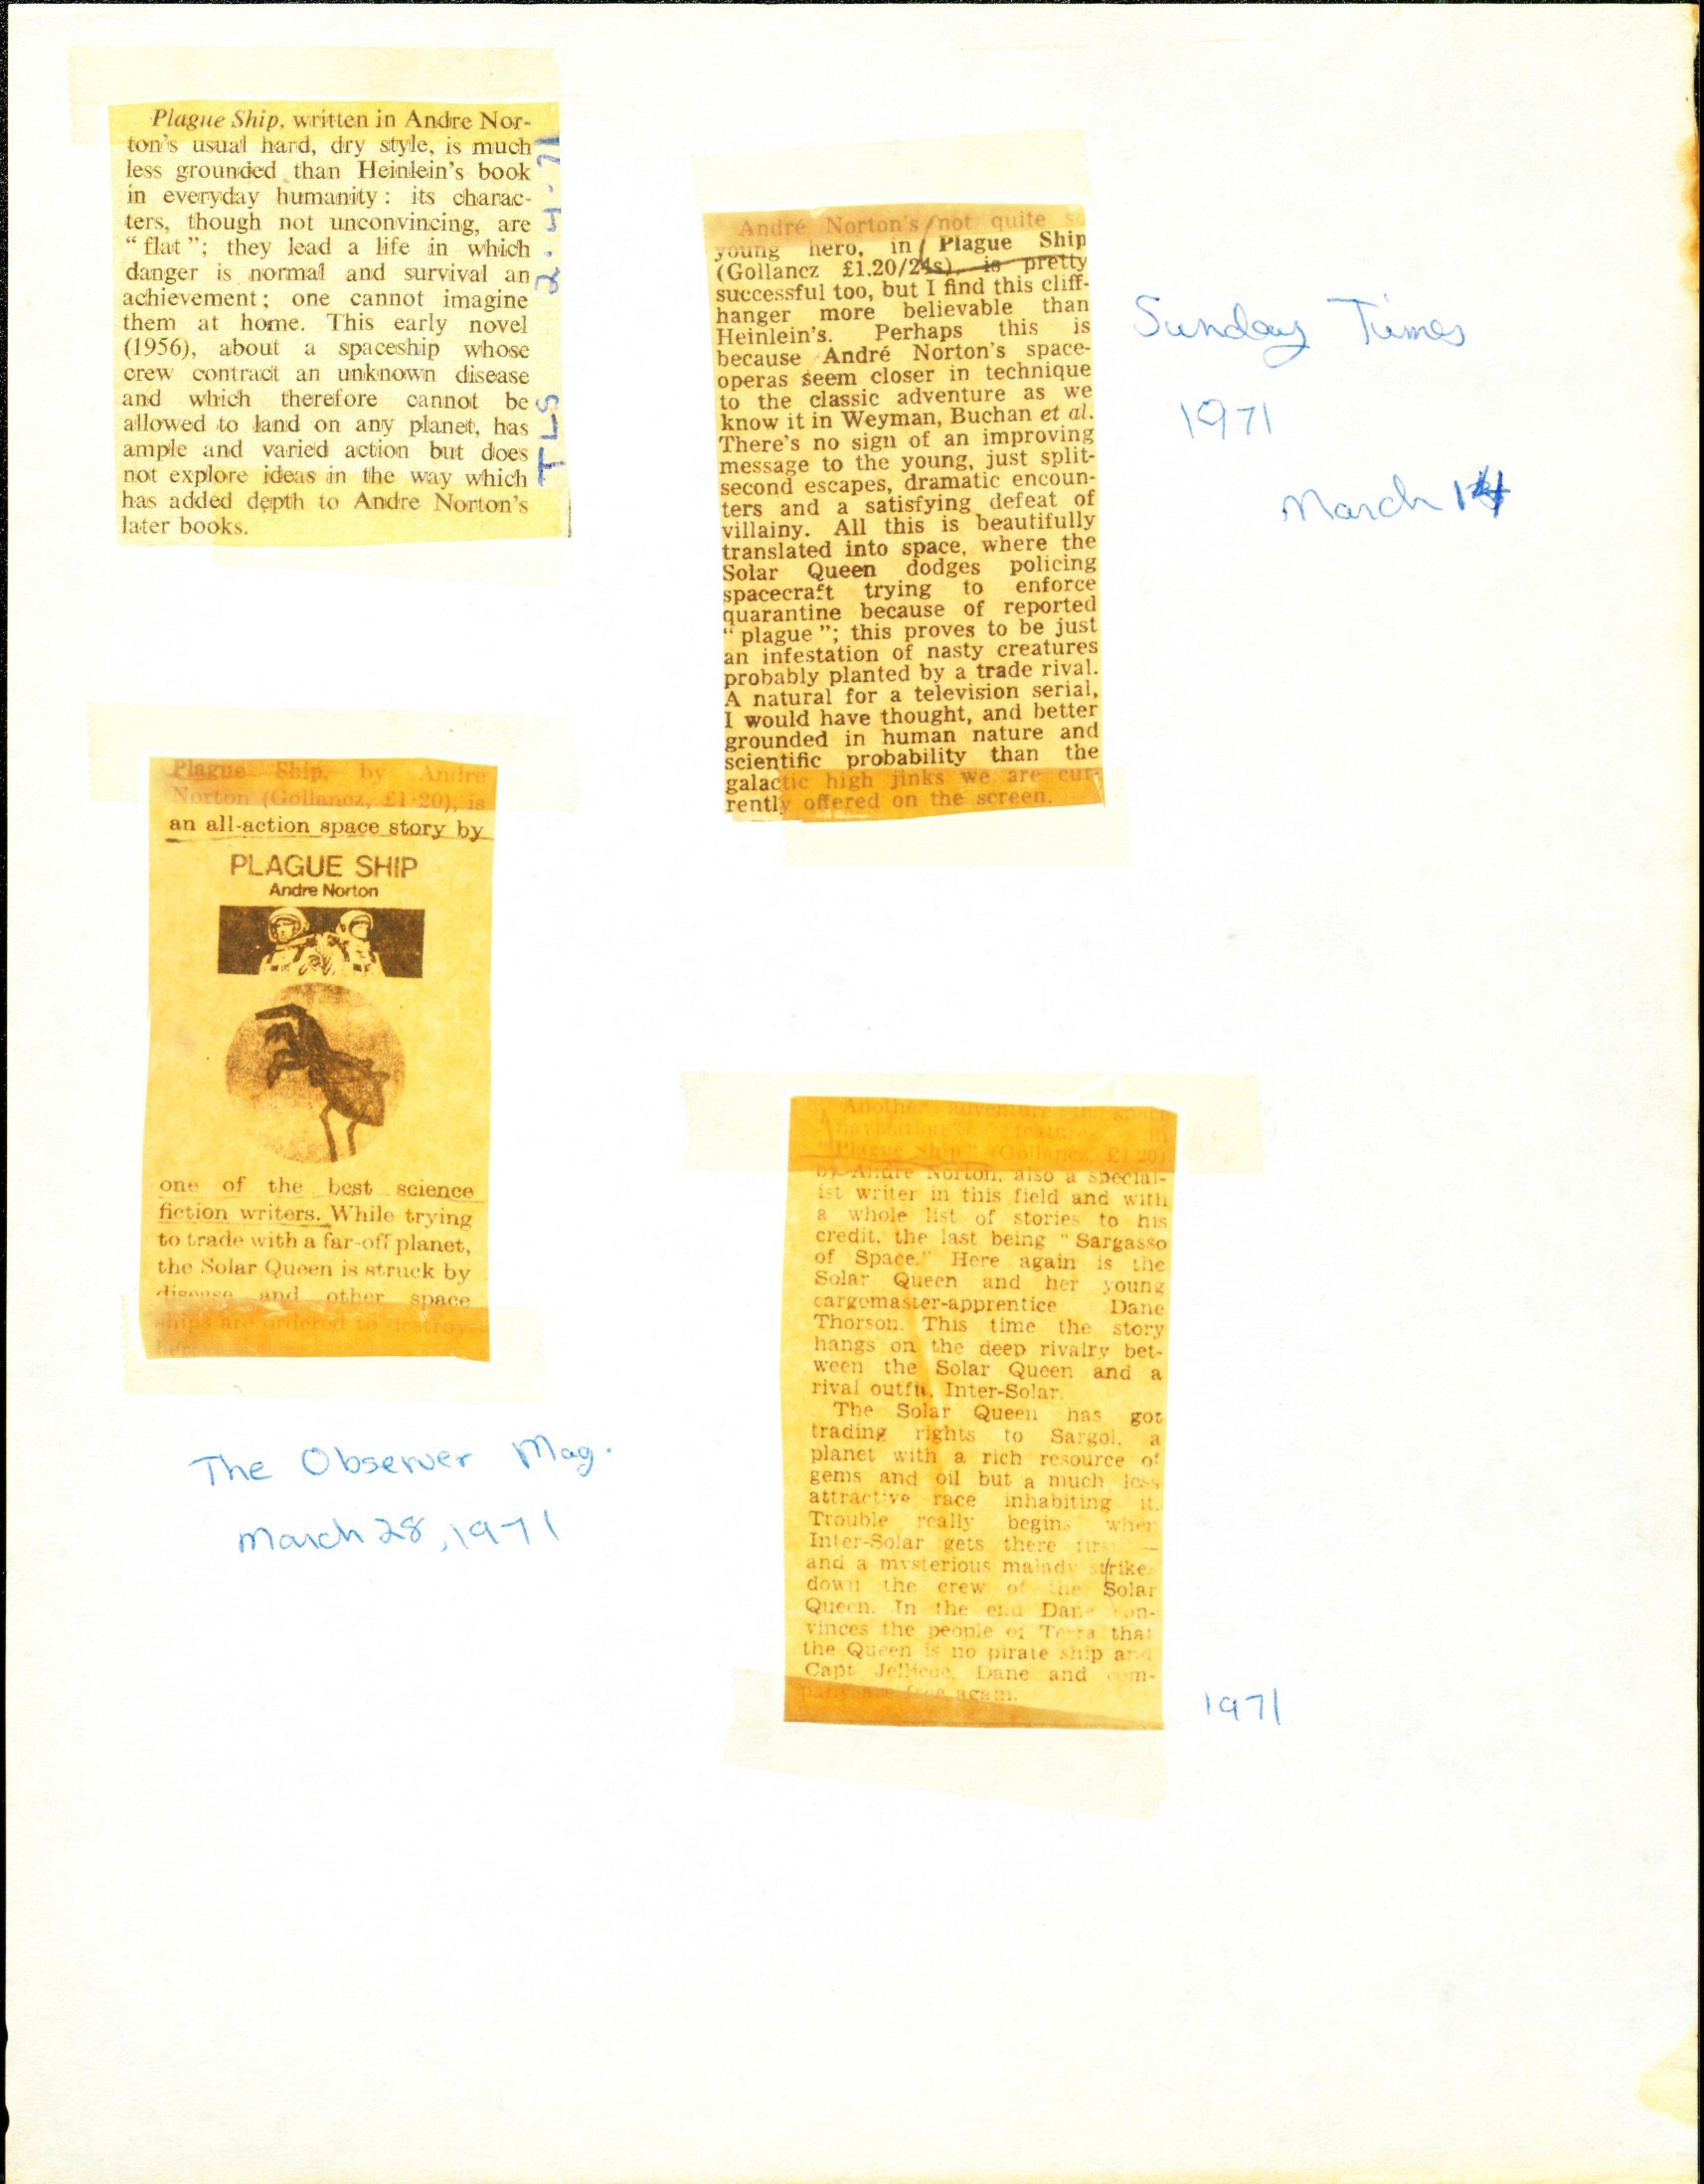 Plague Ship, written in Andre Nor-
ton's usual hard, dry style, is much
less grounded than Heinlein's book
in everyday humanity: its charac-
ters, though not unconvincing, are
"flat"; they lead a life in which
danger is normal and survival an
achievement; one cannot imagine
them at home. This early novel
(1956), about a spaceship whose
crew contract an unknown disease
and which therefore cannot be
allowed to land on any planet, has
ample and varied action but does
not explore ideas in the way which
has added depth to Andre Norton's
later books.
TLS 2.4.71
André Norton's not quite so
young hero, in Plague Ship
(Gollancz £1.20/24s), is pretty
successful too, but I find this cliff-
hanger more believable than
Heinlein's. Perhaps this is
because André Norton's space-
operas seem closer in technique
to the classic adventure as we
know it in Weyman, Buchan et al.
There's no sign of an improving
message to the young, just split-
second escapes, dramatic encoun-
ters and a satisfying defeat of
villainy. All this is beautifully
translated into space, where the
Solar Queen dodges policing
spacecraft trying to enforce
quarantine because of reported
"plague"; this proves to be just
an infestation of nasty creatures
probably planted by a trade rival.
A natural for a television serial,
I would have thought, and better
grounded in human nature and
scientific probability than the
galactic high jinks we are cur-
rently offered on the screen.
Sunday Times
1971
March 14
Plague Ship, by Andre
Norton (Gollancz, £1·20), is
an all-action space story by
PLAGUE SHIP
Andre Norton
one of the best science
fiction writers. While trying
to trade with a far-off planet,
the Solar Queen is struck by
disease and other space
ships are ordered to destroy
her.
The Observer Mag.
March 28, 1971
Another adventure in space
navigation features in
"Plague Ship" (Gollancz, £1.20)
by Andre Norton, also a special-
ist writer in this field and with
a whole list of stories to his
credit, the last being "Sargasso
of Space." Here again is the
Solar Queen and her young
cargomaster-apprentice Dane
Thorson. This time the story
hangs on the deep rivalry bet-
ween the Solar Queen and a
rival outfit, Inter-Solar.
The Solar Queen has got
trading rights to Sargol, a
planet with a rich resource of
gems and oil but a much less
attractive race inhabiting it.
Trouble really begins when
Inter-Solar gets there first —
and a mysterious malady strikes
down the crew of the Solar
Queen. In the end Dane con-
vinces the people of Terra that
the Queen is no pirate ship and
Capt Jellicoe, Dane and com-
pany are free again.
1971